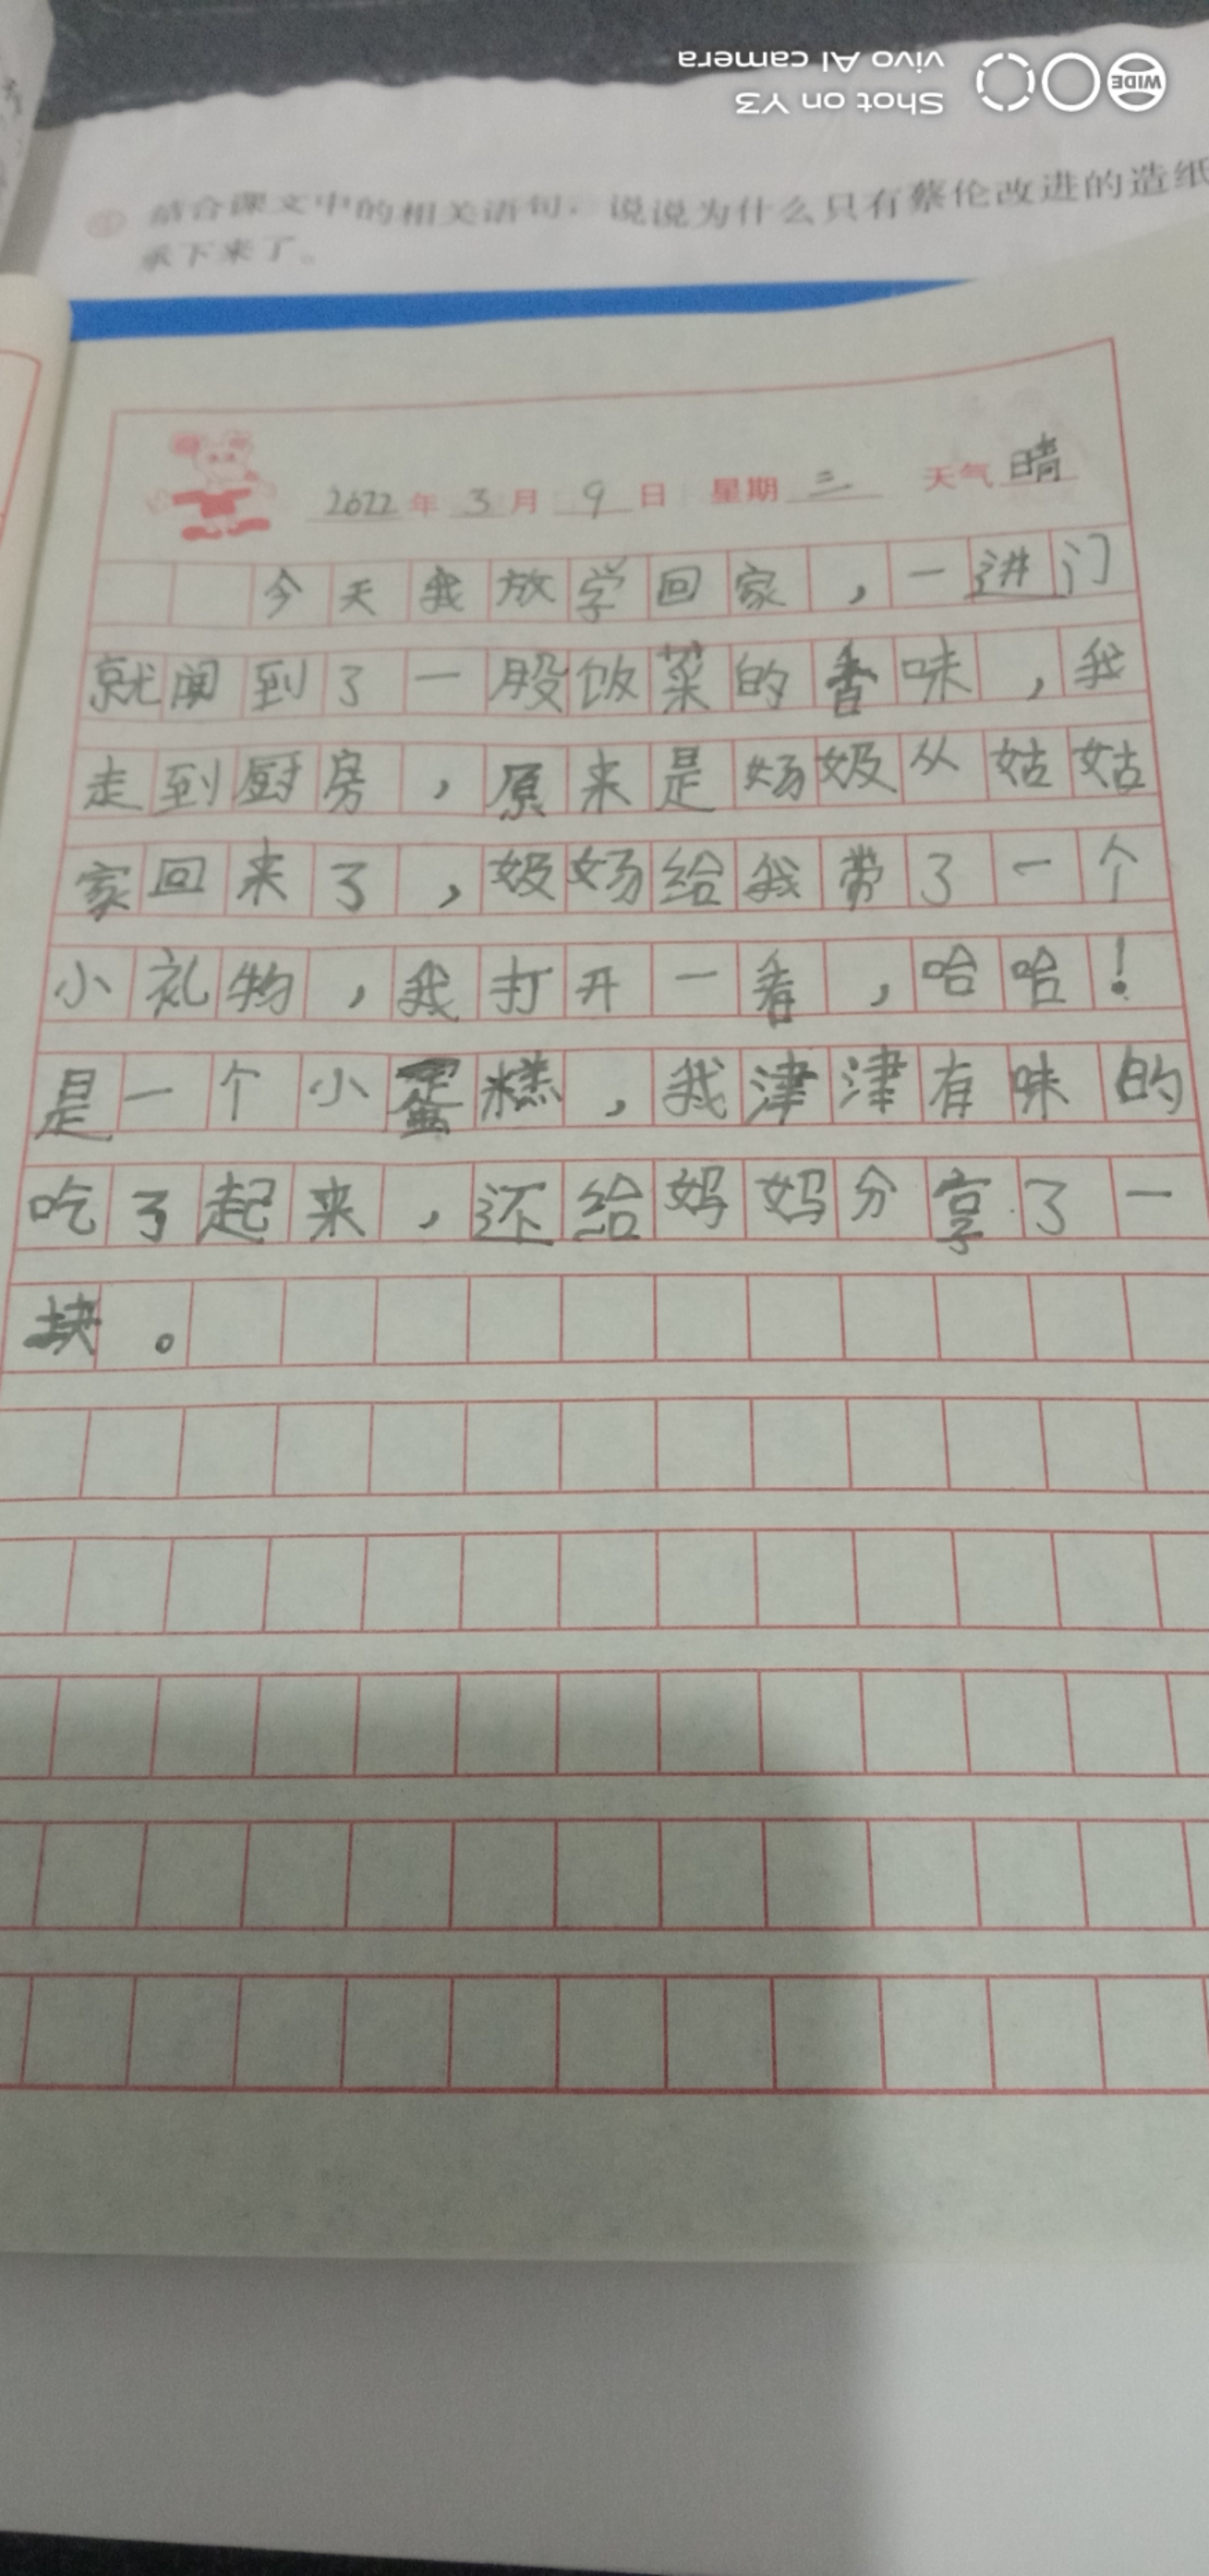 WIDE
Shot on Y3
vivo AI camera
结合课文中的相关语句,说说为什么只有蔡伦改进的造纸
承下来了。
2022年3月9日 星期三 天气晴
今天我放学回家,一进门
就闻到了一股饭菜的香味,我
走到厨房,原来是奶奶从姑姑
家回来了,奶奶给我带了一个
小礼物,我打开一看,哈哈!
是一个小蛋糕,我津津有味的
吃了起来,还给妈妈分享了一
块。